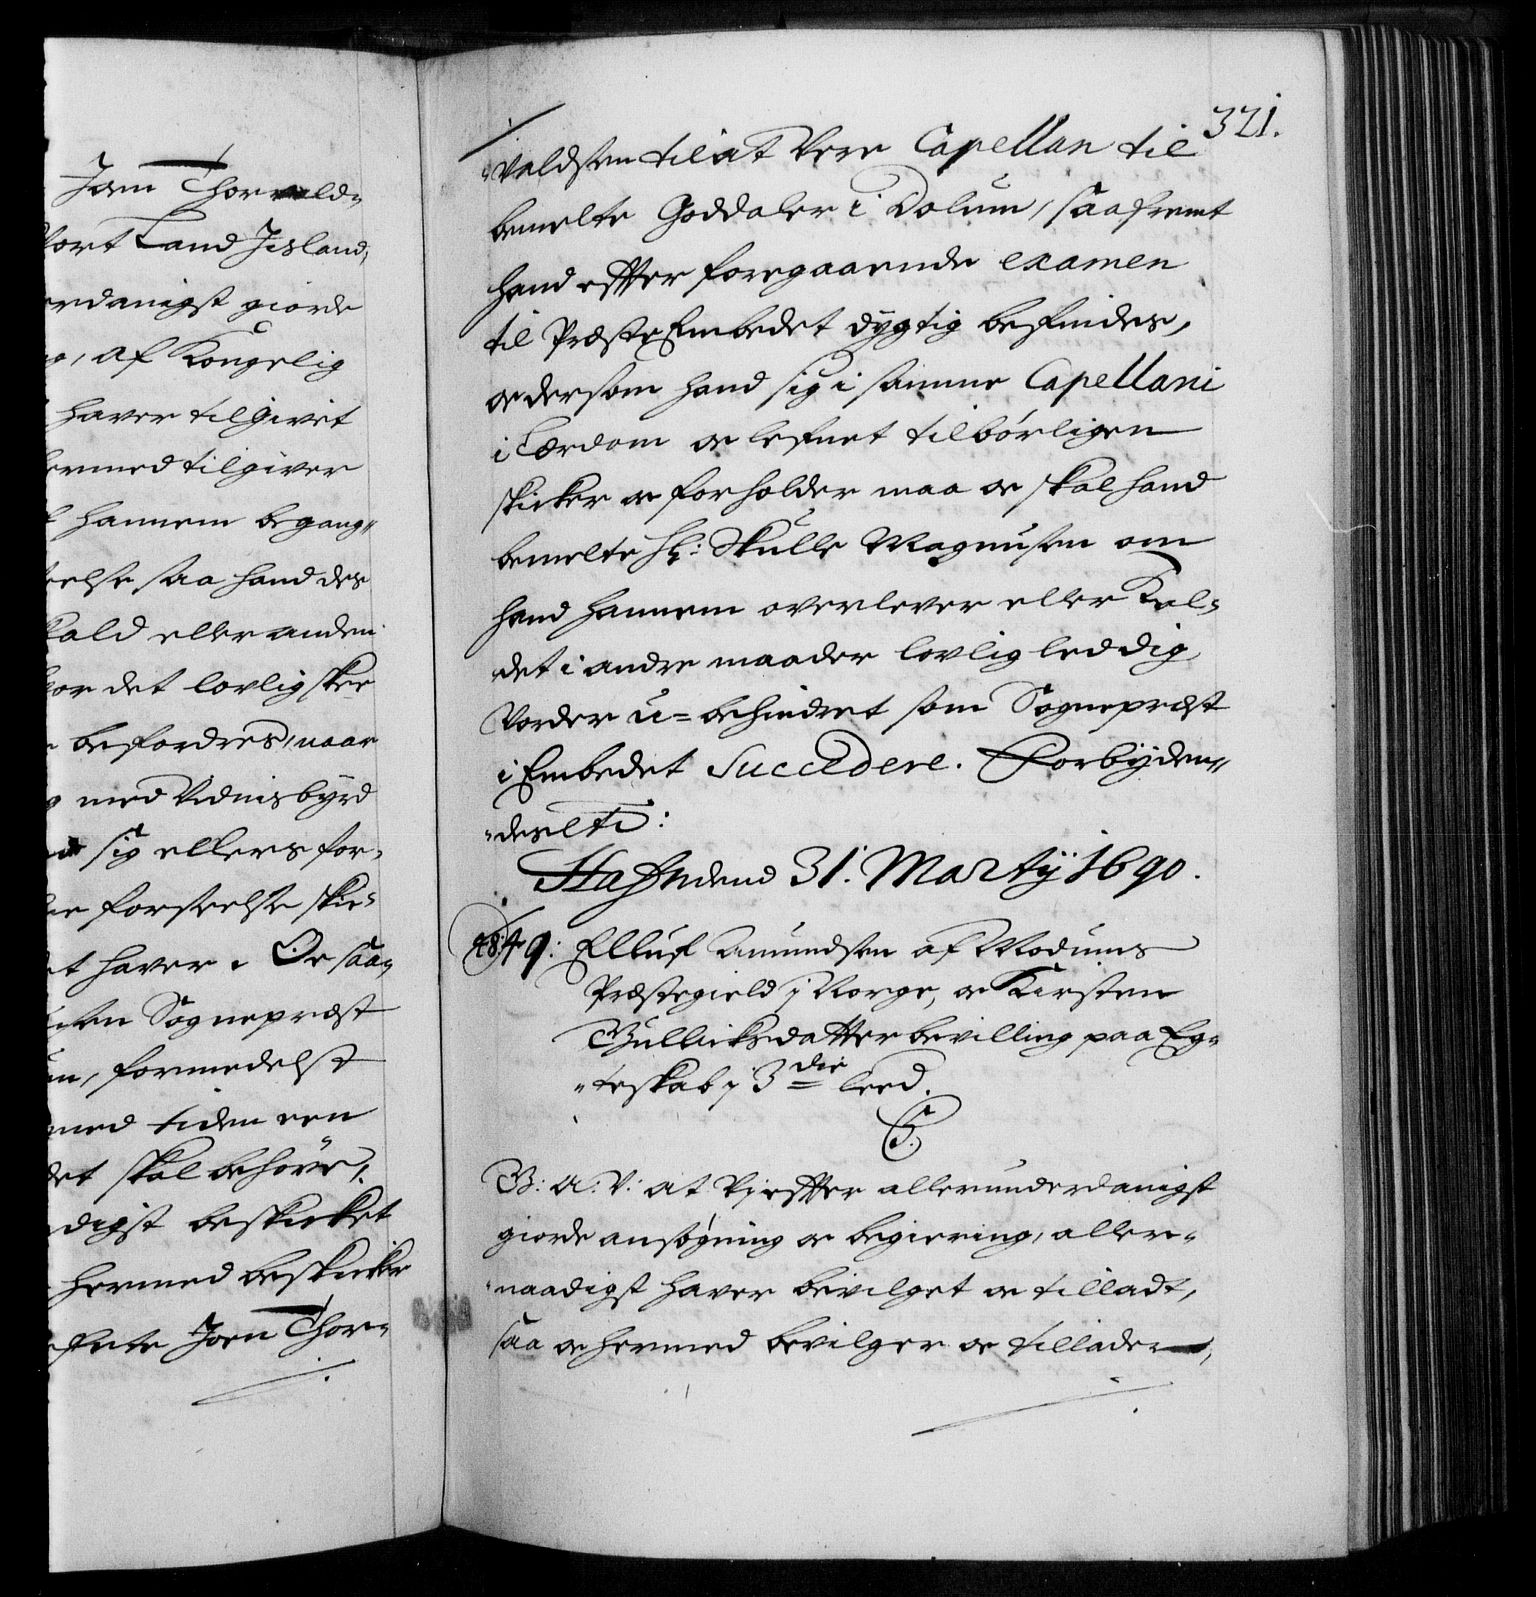 Joen Thorvald-
vort Land Jisland,
erdanigst giorde
af Kongelig
haver tilgivet
hermed tilgiver
hannem begang-
else saa hand des
Kald eller anden
hvor det lovlig skee
befordres, naar
med Vidnisbyrd
sig ellers for-
forseelse skic-
et haver. Oc saa-
Sognepræst
formedelst
med tiden een
det skal behøve,
digst beskicket
hermed beskicker
Joen Thor-
321.
valdsen til at Vere Capellan til
bemelte Goddaler i Dolum, saafremt
hand effter foregaaende examen
til PræsteEmbedet dygtig befindes,
oc dersom hand sig i samme Capellani
i Lærdom oc lefnet tilbørligen
skicker oc forholder maa oc skal hand
bemelte Hr: Skulle Magnusen om
hand hannem overlever eller Kal-
det i andre maader lovlig leddig
Vorder u-behindret som Sognepræst
i Embedet Succedere. Forbÿden-
des etc:
Hafn dend 31. Martÿ 1690.
49: Elluf Amundsen af Modums
Præstegield j Norge, oc Kirsten
Gullicksdatter bevilling paa Eg-
teskab j 3die Leed.
C5.
G: A: V: at Vj effter allerunderdanigst
giorde ansøgning oc begiering, aller-
naadigst haver bevilget oc tilladt,
saa oc hermed bevilger oc tillader,